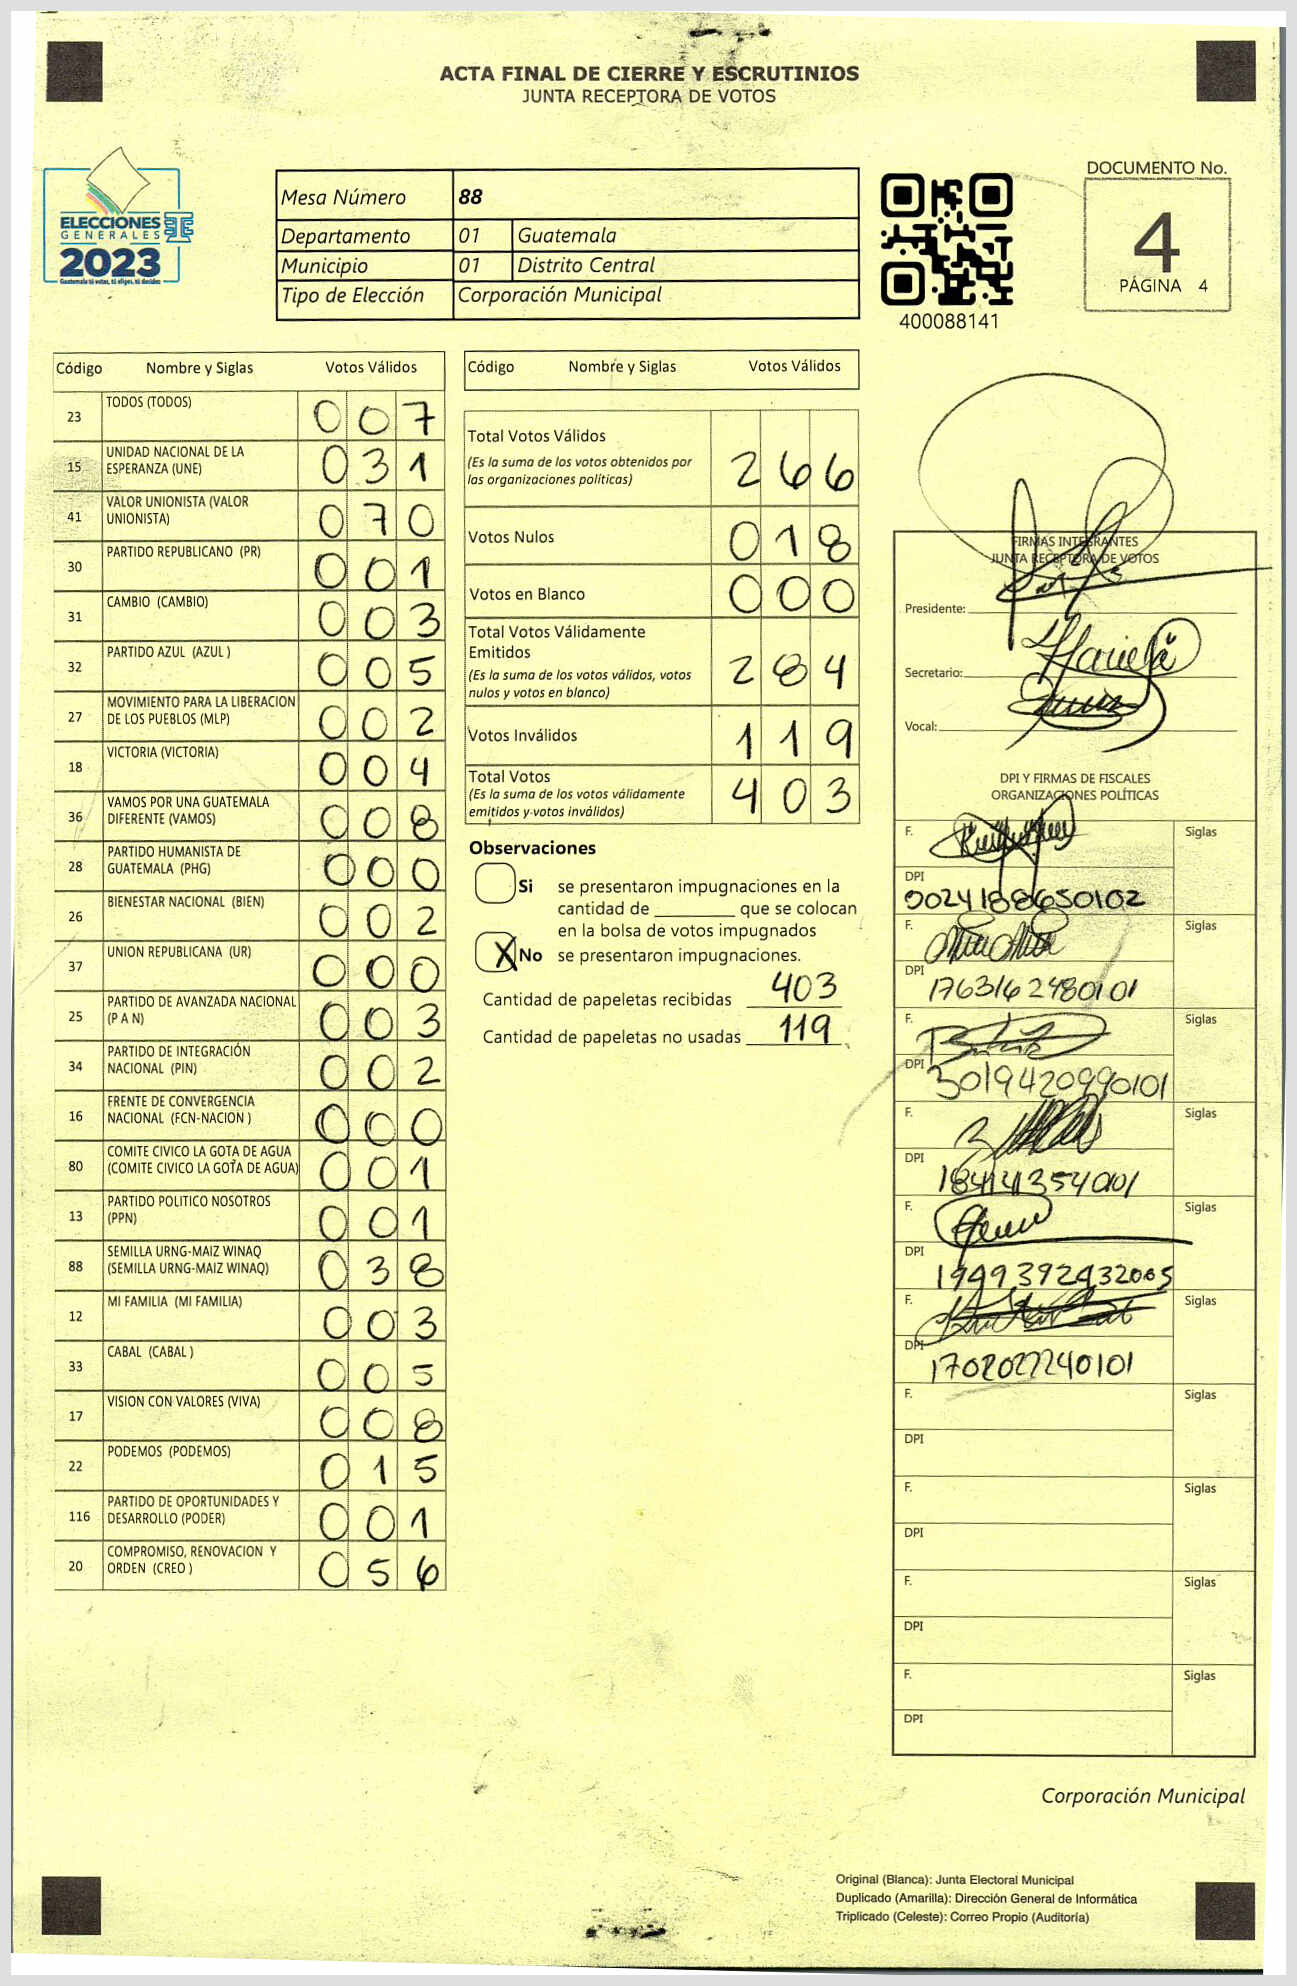 ACTA FINAL DE CIERRE Y ESCRUTINIOS
JUNTA RECEPTORA DE VOTOS
ELECCIONES
GENERALES
2023
Guatemala tú votas, tú eliges, tú decides
Mesa Número 88
Departamento 01 Guatemala
Municipio 01 Distrito Central
Tipo de Elección Corporación Municipal
400088141
DOCUMENTO No.
4
PÁGINA 4
Código Nombre y Siglas Votos Válidos
23 TODOS (TODOS) 007
15 UNIDAD NACIONAL DE LA
ESPERANZA (UNE) 031
41 VALOR UNIONISTA (VALOR
UNIONISTA) 070
30 PARTIDO REPUBLICANO (PR) 001
31 CAMBIO (CAMBIO) 003
32 PARTIDO AZUL (AZUL ) 005
27 MOVIMIENTO PARA LA LIBERACION
DE LOS PUEBLOS (MLP) 002
18 VICTORIA (VICTORIA) 004
36 VAMOS POR UNA GUATEMALA
DIFERENTE (VAMOS) 008
28 PARTIDO HUMANISTA DE
GUATEMALA (PHG) 000
26 BIENESTAR NACIONAL (BIEN) 002
37 UNION REPUBLICANA (UR) 000
25 PARTIDO DE AVANZADA NACIONAL
(P A N) 003
34 PARTIDO DE INTEGRACIÓN
NACIONAL (PIN) 002
16 FRENTE DE CONVERGENCIA
NACIONAL (FCN-NACION ) 000
80 COMITE CIVICO LA GOTA DE AGUA
(COMITE CIVICO LA GOTA DE AGUA) 001
13 PARTIDO POLITICO NOSOTROS
(PPN) 001
88 SEMILLA URNG-MAIZ WINAQ
(SEMILLA URNG-MAIZ WINAQ) 038
12 MI FAMILIA (MI FAMILIA) 003
33 CABAL (CABAL ) 005
17 VISION CON VALORES (VIVA) 008
22 PODEMOS (PODEMOS) 015
116 PARTIDO DE OPORTUNIDADES Y
DESARROLLO (PODER) 001
20 COMPROMISO, RENOVACION Y
ORDEN (CREO ) 056
Código Nombre y Siglas Votos Válidos
Total Votos Válidos 266
(Es la suma de los votos obtenidos por
las organizaciones políticas)
Votos Nulos 018
Votos en Blanco 000
Total Votos Válidamente
Emitidos 284
(Es la suma de los votos válidos, votos
nulos y votos en blanco)
Votos Inválidos 119
Total Votos 403
(Es la suma de los votos válidamente
emitidos y votos inválidos)
Observaciones
Si se presentaron impugnaciones en la
cantidad de ________ que se colocan
en la bolsa de votos impugnados
X No se presentaron impugnaciones.
Cantidad de papeletas recibidas 403
Cantidad de papeletas no usadas 119
FIRMAS INTEGRANTES
JUNTA RECEPTORA DE VOTOS
Presidente:
Secretario:
Vocal:
DPI Y FIRMAS DE FISCALES
ORGANIZACIONES POLÍTICAS
F. Siglas
DPI
0024188650102
F. Siglas
DPI
1763162480101
F. Siglas
DPI
3019420990101
F. Siglas
DPI
F. Siglas
DPI
1949392432005
F. Siglas
DPI
F. Siglas
DPI
F. Siglas
DPI
F. Siglas
DPI
F. Siglas
DPI
Corporación Municipal
Original (Blanca): Junta Electoral Municipal
Duplicado (Amarilla): Dirección General de Informática
Triplicado (Celeste): Correo Propio (Auditoría)